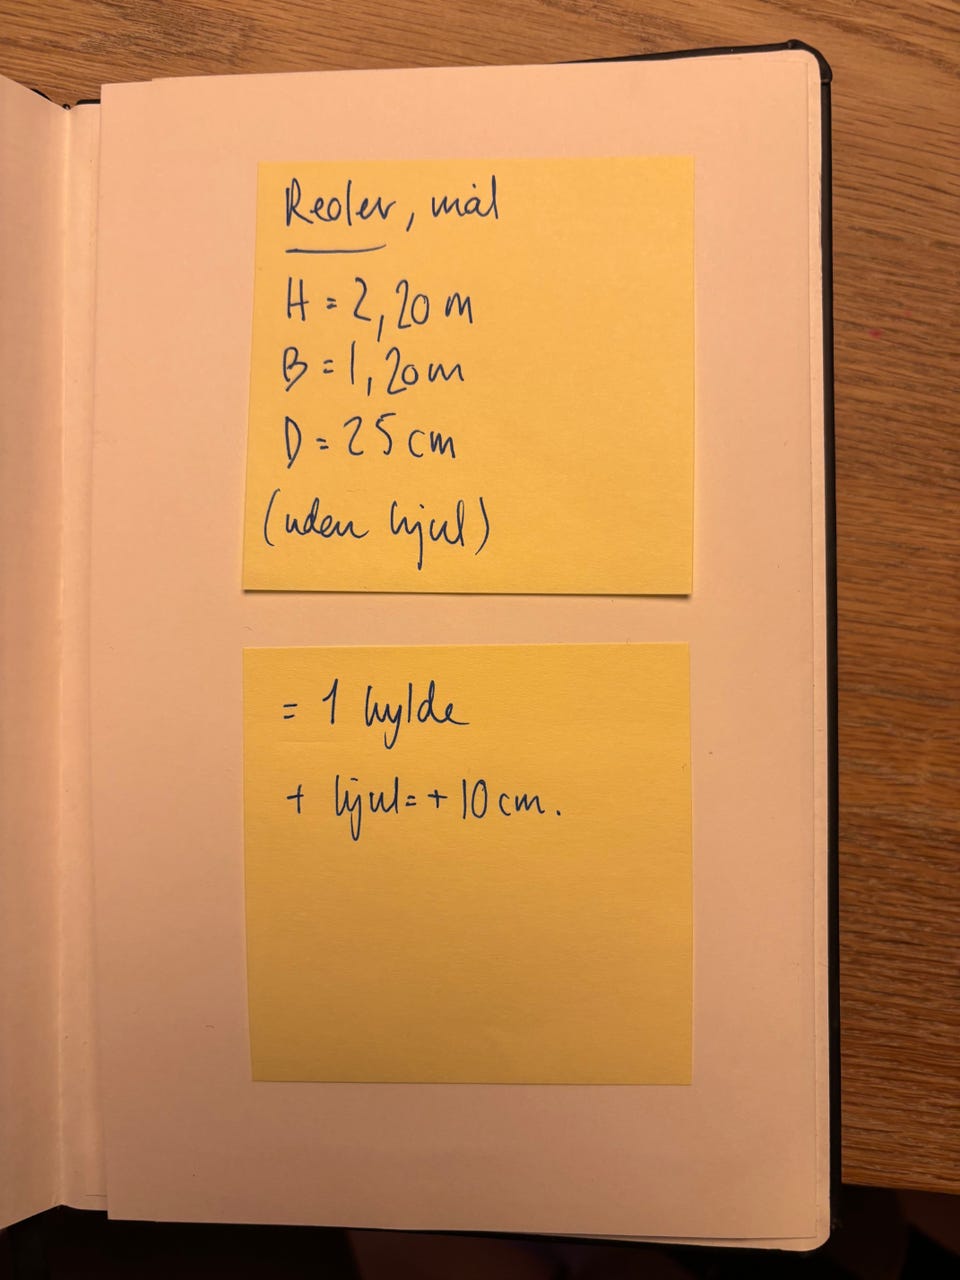 Reoler, mål
H = 2,20 m
B = 1,20 m
D = 25 cm
(uden hjul)
= 1 hylde
+ hjul = + 10 cm.